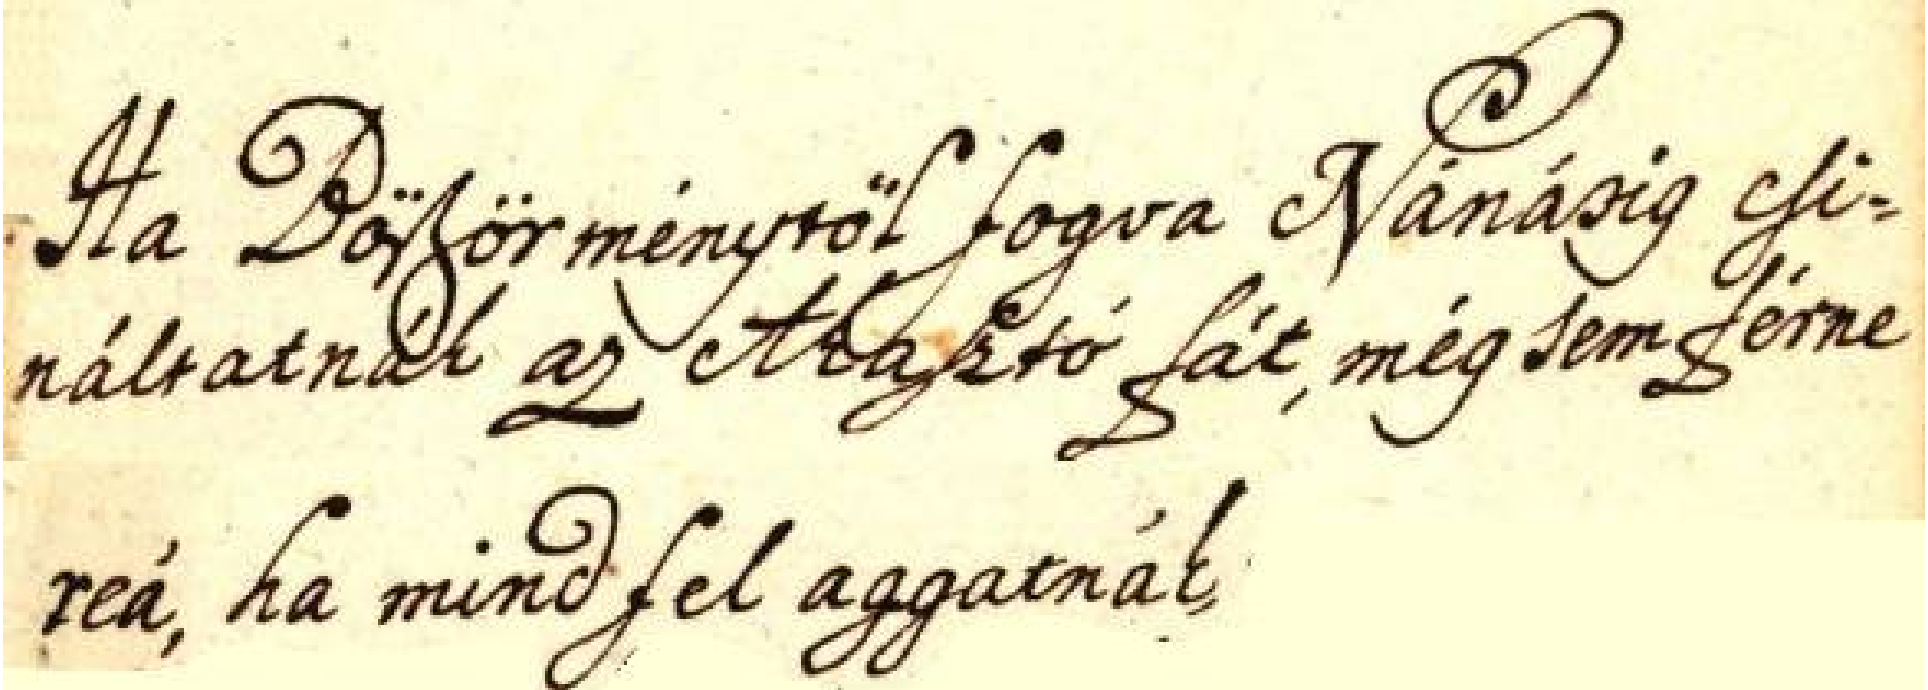 Ha Böszörménytöl fogva Nánásig csi-
náltatnák az Akasztó fát, még sem férne
reá, ha mind fel aggatnák,